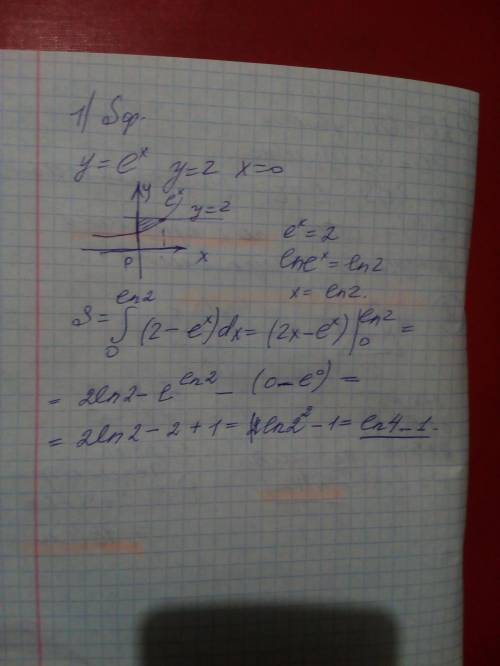 1) Sф.
y = eˣ y=2 x=0
y
eˣ
y=2
x
eˣ = 2
ln eˣ = ln2
x = ln2.
S = ∫₀^{ln2} (2 - eˣ)dx = (2x - eˣ) |₀^{ln2} =
= 2ln2 - e^{ln2} - (0 - e⁰) =
= 2ln2 - 2 + 1 = ln2² - 1 = ln4 - 1.